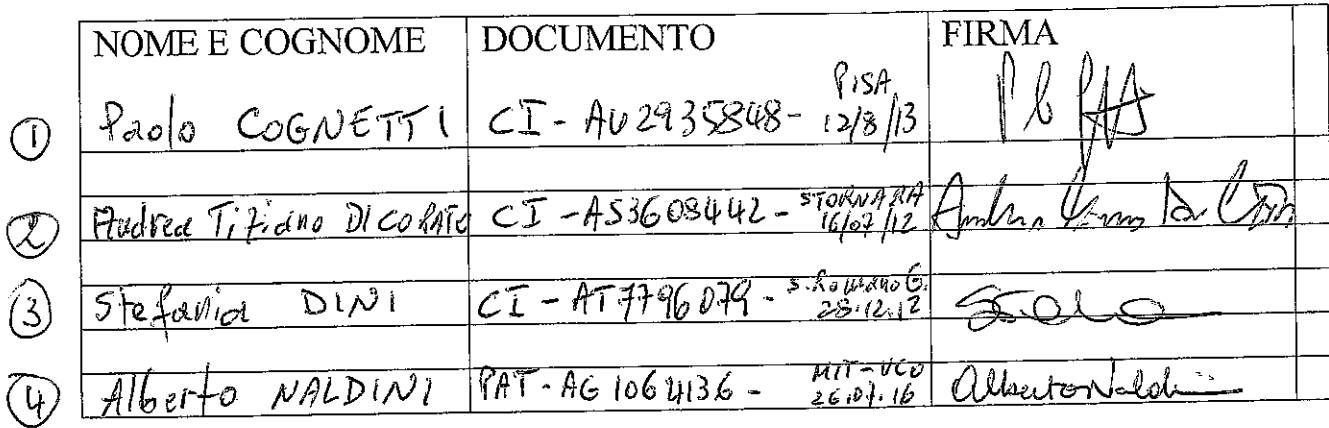 NOME E COGNOME DOCUMENTO FIRMA
① Paolo COGNETTI CI - AU 2935848 - PISA 12/8/13
② Andrea Tiziano DICORATO CI - AS3608442 - STORNARA 16/07/12
③ Stefania DINI CI - AT7796079 - S. Romano G. 28.12.12
④ Alberto NALDINI PAT - AG 1064136 - MIT-UCO 26.07.16 Alberto Naldini